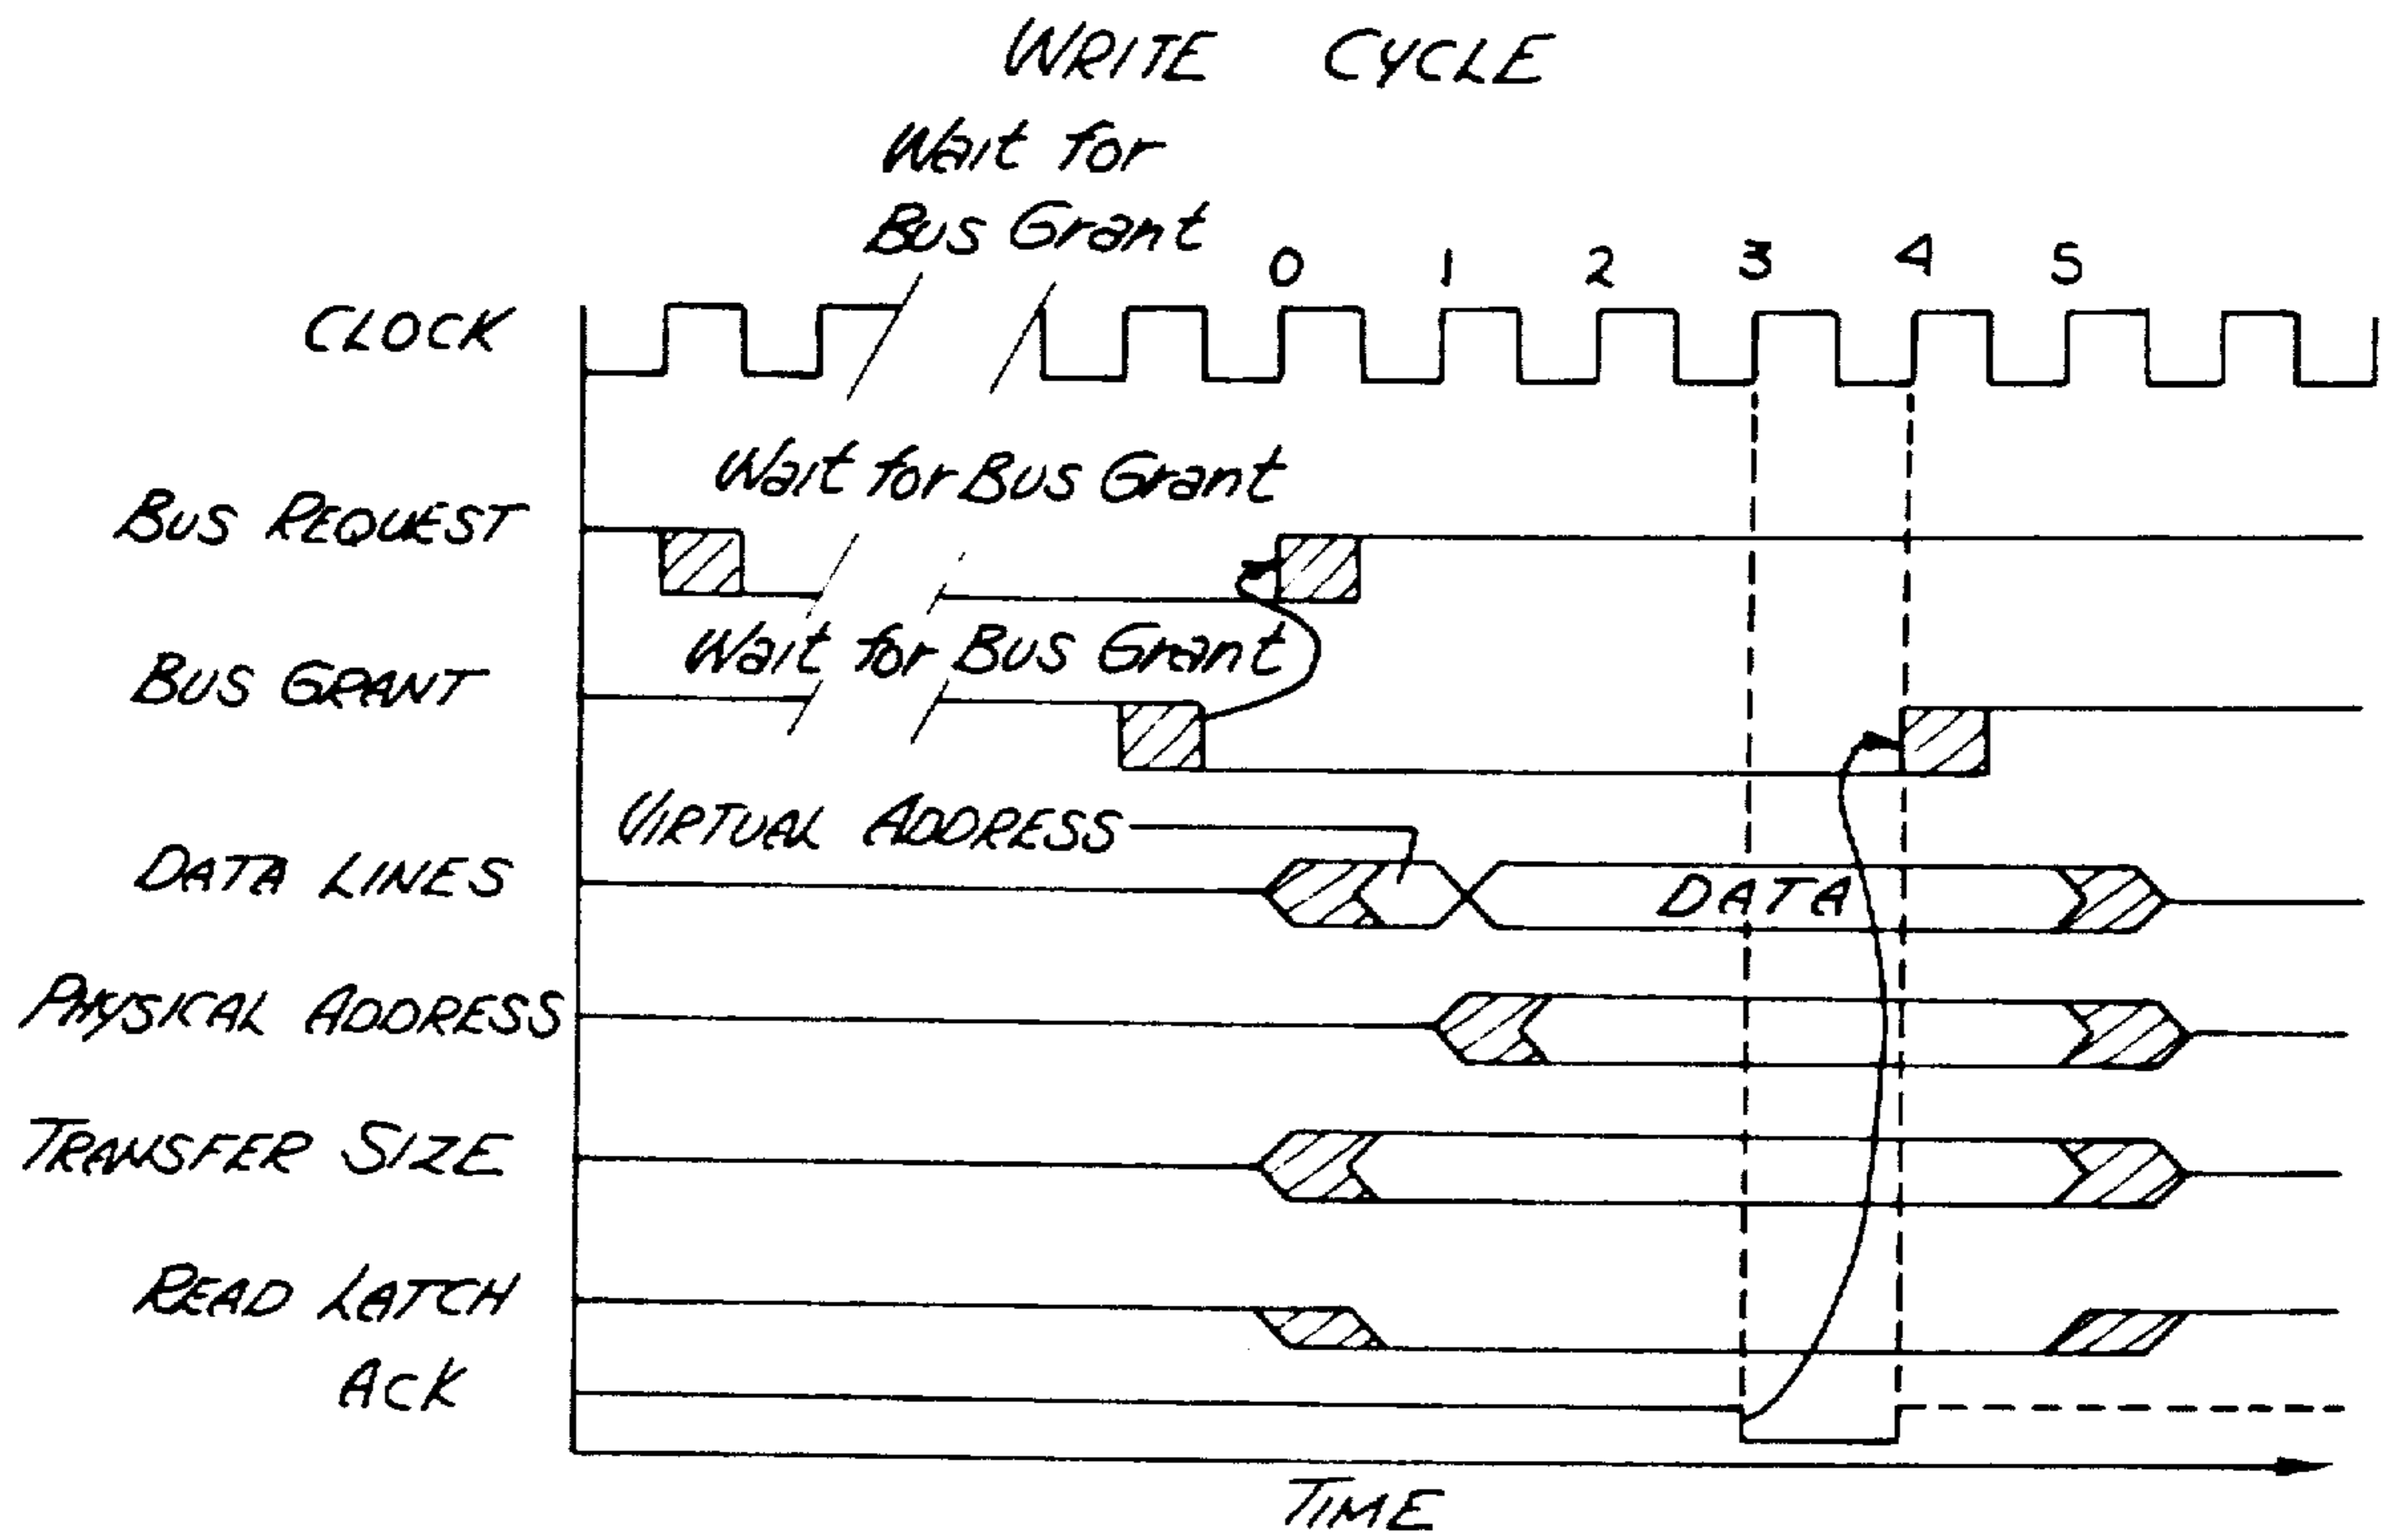 WRITE CYCLE
Wait for
Bus Grant
0 1 2 3 4 5
CLOCK
Wait for Bus Grant
BUS REQUEST
Wait for Bus Grant
BUS GRANT
VIRTUAL ADDRESS
DATA LINES
DATA
PHYSICAL ADDRESS
TRANSFER SIZE
READ LATCH
ACK
TIME